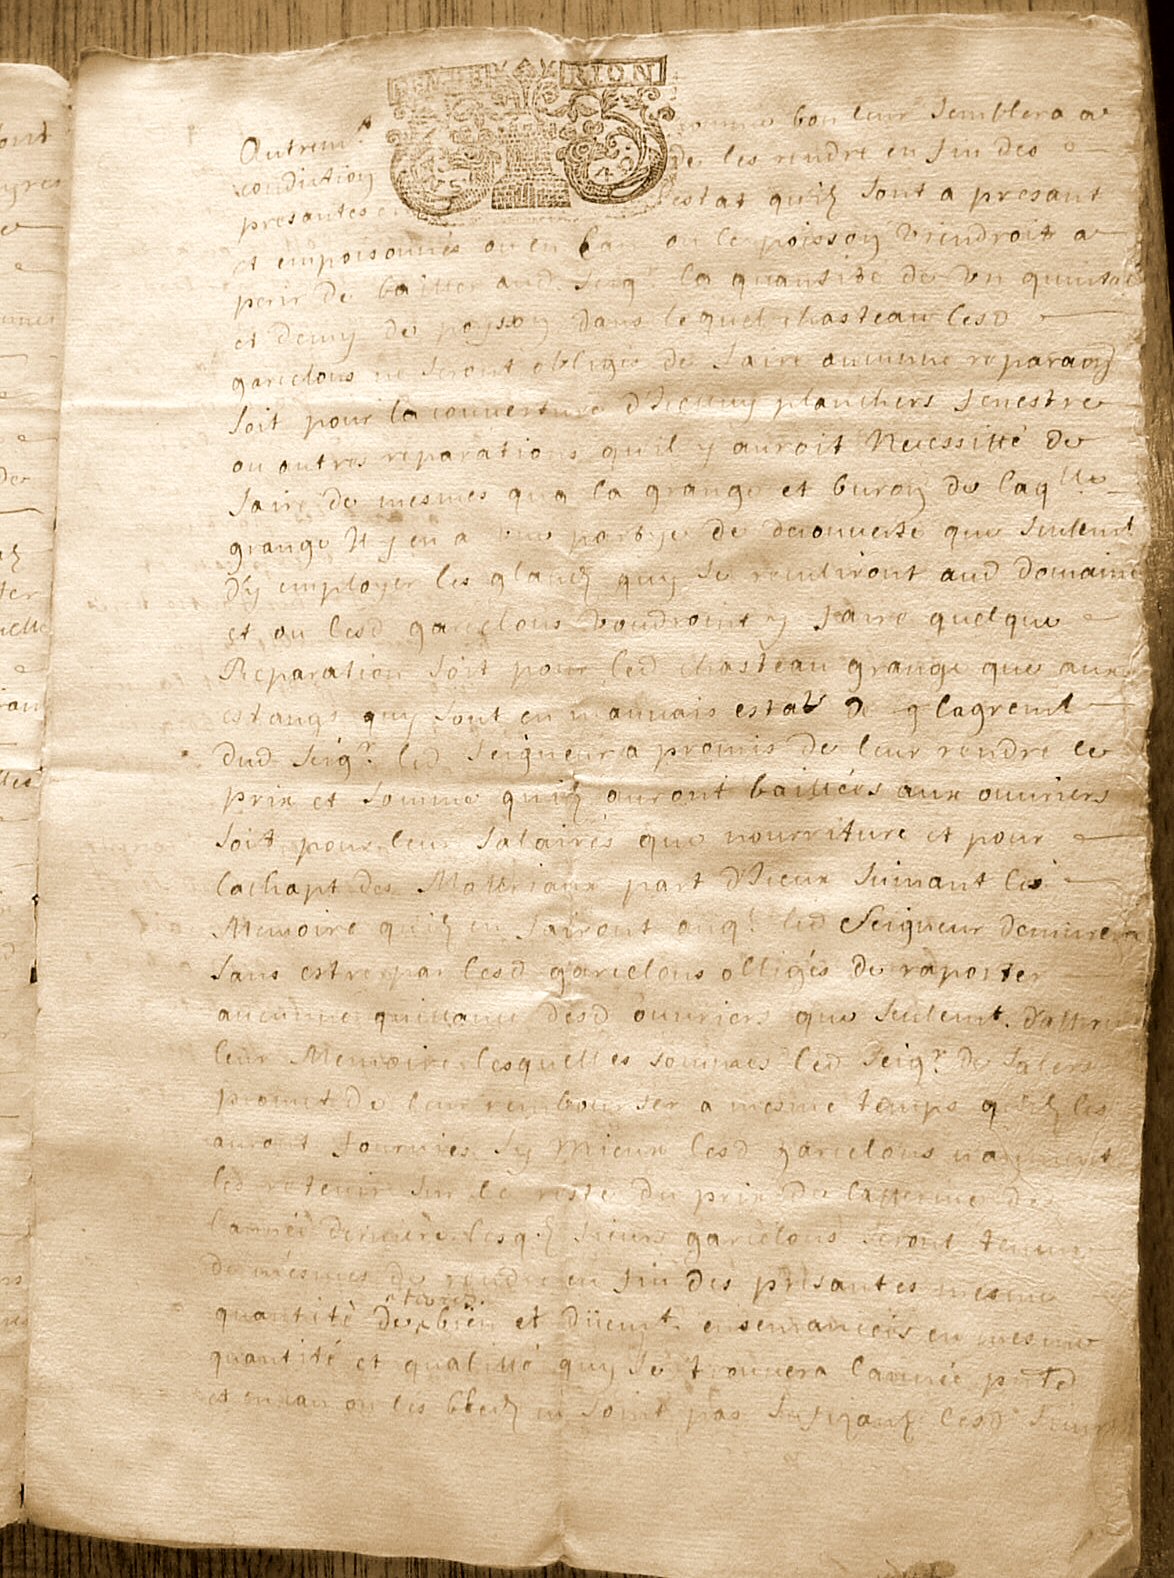 GEN DE RION
Autremt comme bon leur semblera a
condiction de les rendre en fin des
presantes en l'estat quilz sont a presant
et empoisonnés ou en cas ou le poisson viendroit a
perir de bailler aud. Seigr la quantité de un quintal
et demy de poysson dans lequel chasteau lesd
garcelons ne seront obligés de faire aucune reparaon
soit pour la couverture d'Icelluy planchers fenestre
ou autres reparations quil y auroit Necessitté de
faire de mesmes qua la grange et buron de laqlle
grange Il y en a une partye de decouverte que seulemt
d'y employer les glandz quy se cuulliront aud domaine
et ou lesd garcelons voudroint y faire quelque
Reparation soit pour led chasteau grange que aux
estangs quy sont en mauvais estat de lagremt
dud. Seigr led Seigneur a promis de leur rendre le
prix et somme quilz auront baillées aux ouvriers
soit pour leur salaires que nourriture et pour
lachapt des Matteriaux part d'Iceux suivant les
Memoire quilz en fairont auql led Seigneur demurera
sans estre par lesd garcelons obligés de raporter
aucune quittance desd ouvriers que seulemt.
leur Memoire lesquelles sommes led Seigr de Salers
promet de leur rembourser a mesme temps quilz les
auront fournies sy mieux lesd garcelons
led retenir sur le reste du prix de lafferme des
l'année derniere lesqlz sieurs garcelons seront tenus
de mesmes de rendre en fin des presantes mesme
quantité de bien et en mesme
quantité et qualitté quy se trouvera l'année
et en cas ou les bledz en soint pas sufizantz lesd sieurs